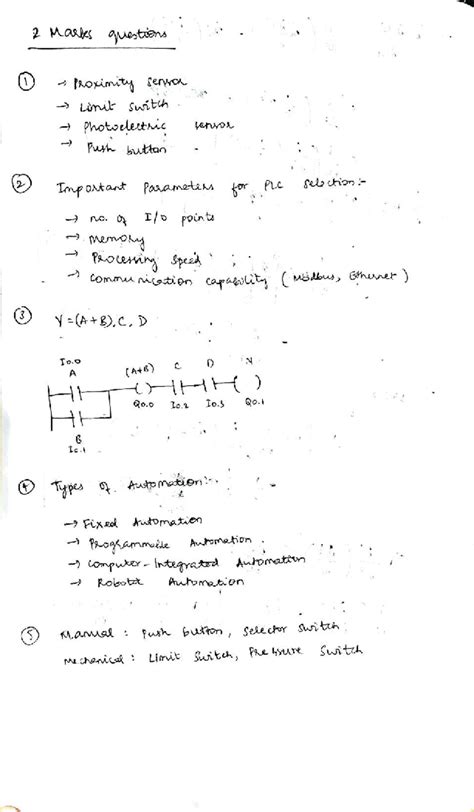 2 Marks questions
① → Proximity sensor
→ Limit switch
→ Photoelectric sensor
→ Push button
② Important Parameters for PLC selection:-
→ no. of I/O points
→ Memory
→ Processing speed
→ communication capability (Modbus, Ethernet)
③ Y=(A+B).C.D
I0.0 A (A+B) C D Y
Q0.0 I0.2 I0.3 Q0.1
B
I0.1
④ Types of Automation:-
→ Fixed Automation
→ Programmable Automation
→ Computer-Integrated Automation
→ Robotic Automation
⑤ Manual : Push button, Selector switch
Mechanical : Limit Switch, Pressure Switch